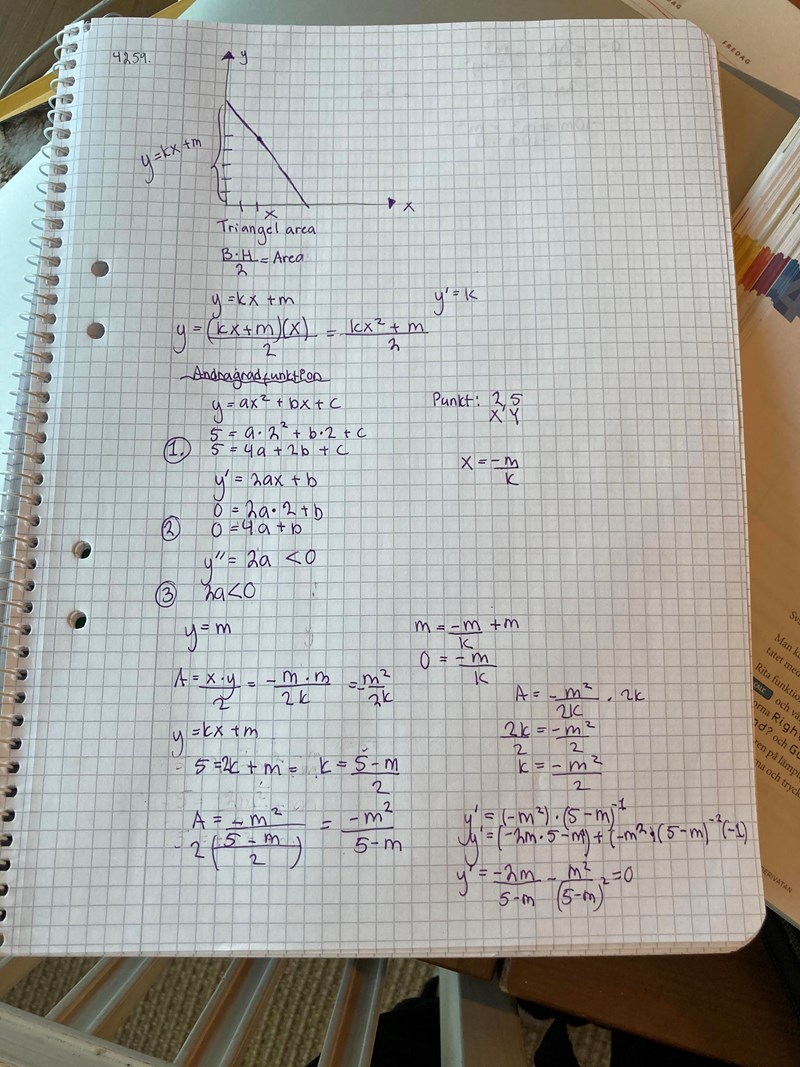 4259.
y
y=kx+m
x
x
Triangel area
B·H/2 = Area
y=kx+m
y'=k
y = (kx+m)(x)/2 = kx²+m/2
Andragradfunktion
y=ax²+bx+c
Punkt: 2,5
X,Y
5=a·2²+b·2+c
1. 5=4a+2b+c
x = -m/k
y'=2ax+b
0=2a·2+b
2 0=4a+b
y''=2a <0
3 2a<0
y=m
m = -m/k + m
0 = -m/k
A = x·y/2 = -m·m/2k = -m²/2k
A = -m²/2k · 2k
y=kx+m
2k/2 = -m²/2
5=2k+m = k = 5-m/2
k = -m²/2
A = -m²/2(5-m/2) = -m²/5-m
y' = (-m²)·(5-m)⁻¹
y' = (-2m·5-m)+(-m²·(5-m)⁻²(-1)
y' = -2m/5-m - m²/(5-m)² = 0
FREDAG
Man
tatet med
Rita funktio
och
Righ
och
på
och tryck